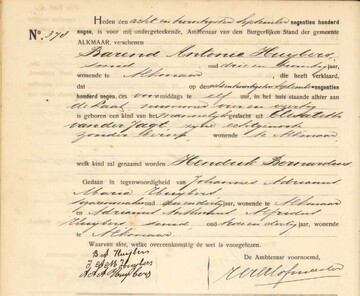 Heden den acht en twintigsten September negentien honderd
negen, is voor mij ondergeteekende, Ambtenaar van den Burgerlijken Stand der gemeente
No. 378
ALKMAAR, verschenen
Barend Antonie Huybers
smid oud drie en twintig jaar,
wonende te Alkmaar, die heeft verklaard,
dat op den acht en twintigsten September negentien
honderd negen, des voormiddags te elf uur, in het huis staande alhier aan
de Raat nummer een en veertig
is geboren een kind van het mannelijk geslacht uit Elisabeth
van der Jagt, zijne echtgenoot
zonder beroep wonende te Alkmaar
welk kind zal genaamd worden Hendrik Bernardus
Gedaan in tegenwoordigheid van Johannes Adrianus
Maria Huybers
oud en dertig jaren, wonende te Alkmaar
en Adrianus Antonius Alfridus
Huybers smid, oud en dertig jaren,
wonende te Alkmaar
Waarvan akte, welke overeenkomstig de wet is voorgelezen.
B. A. Huybers
J. A. M. Huybers
A. A. A. Huybers
De Ambtenaar voornoemd,